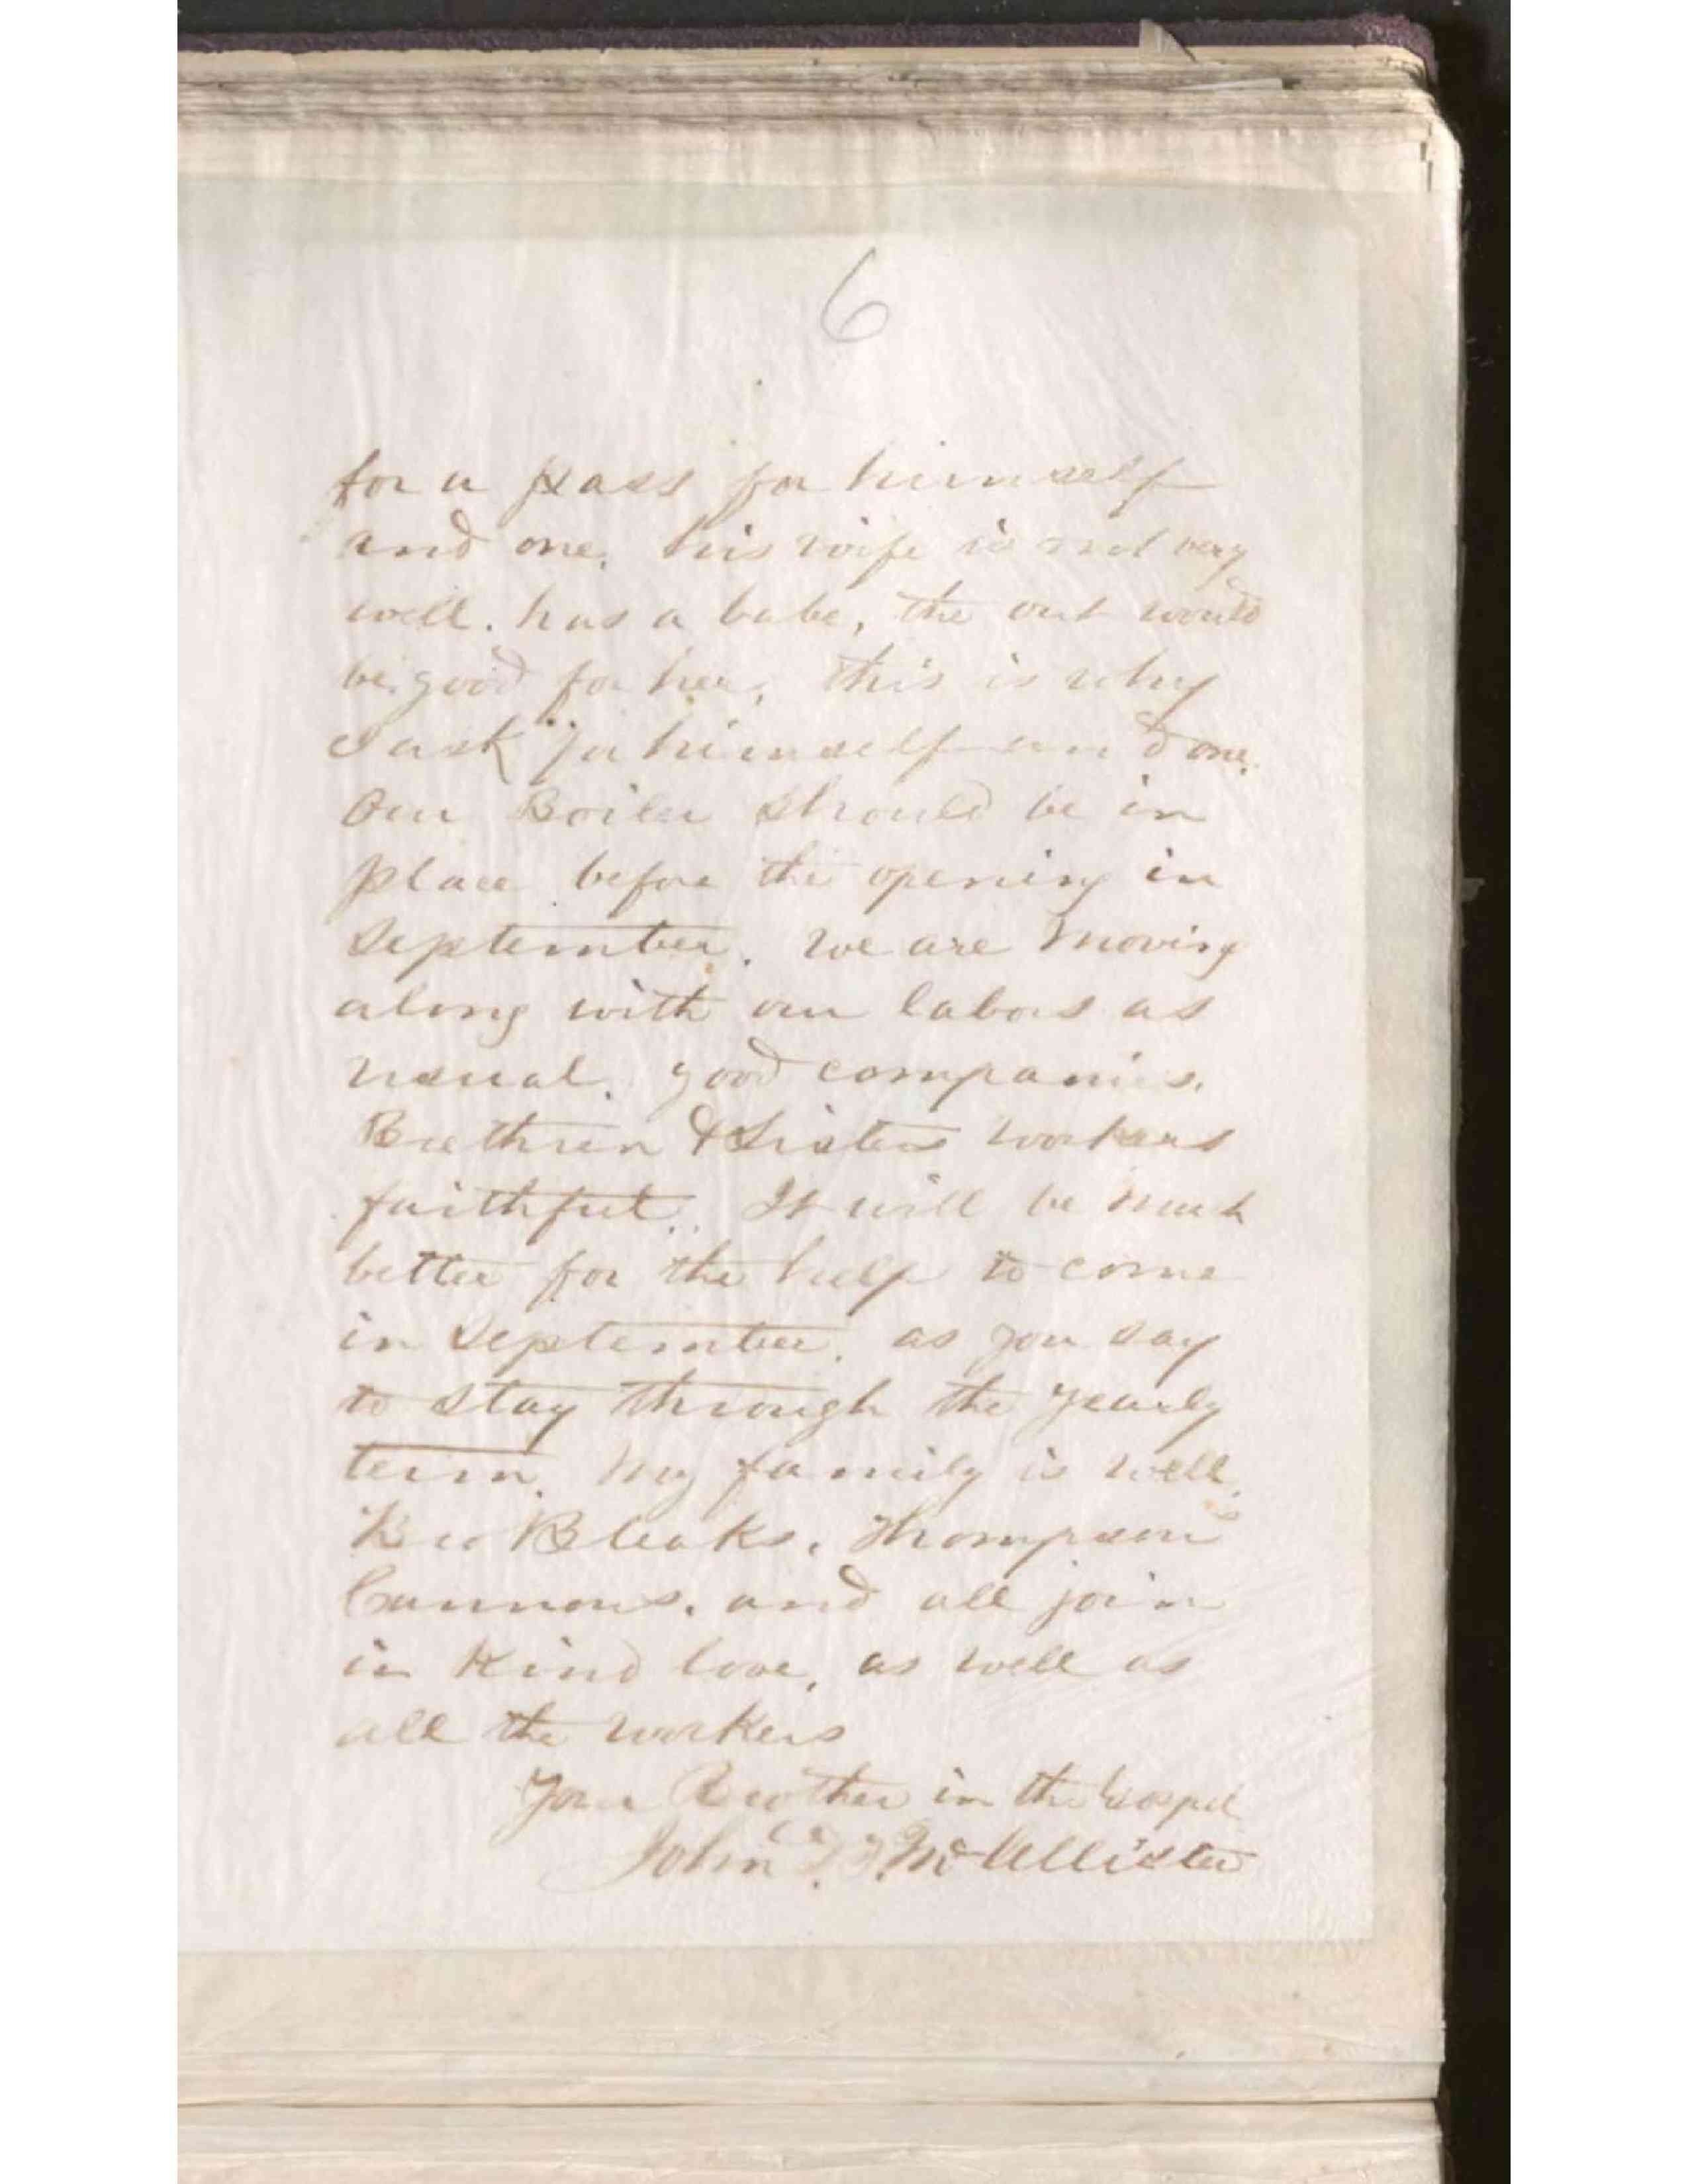 6
for a pass for himself
and one. his wife is not very
well. has a babe, the out would
be good for her, this is why
I ask for himself and one.
Our Boiler should be in
place before the opening in
September. We are moving
along with our labors as
usual. good companies.
Brethren & Sisters workers
faithful. It will be much
better for the help to come
in September. as you say
to stay through the yearly
term. My family is well.
Bro Bleaks. Thompson's
Cannons. and all join
in kind love, as well as
all the workers
Your Brother in the Gospel
John D. T. McAllister